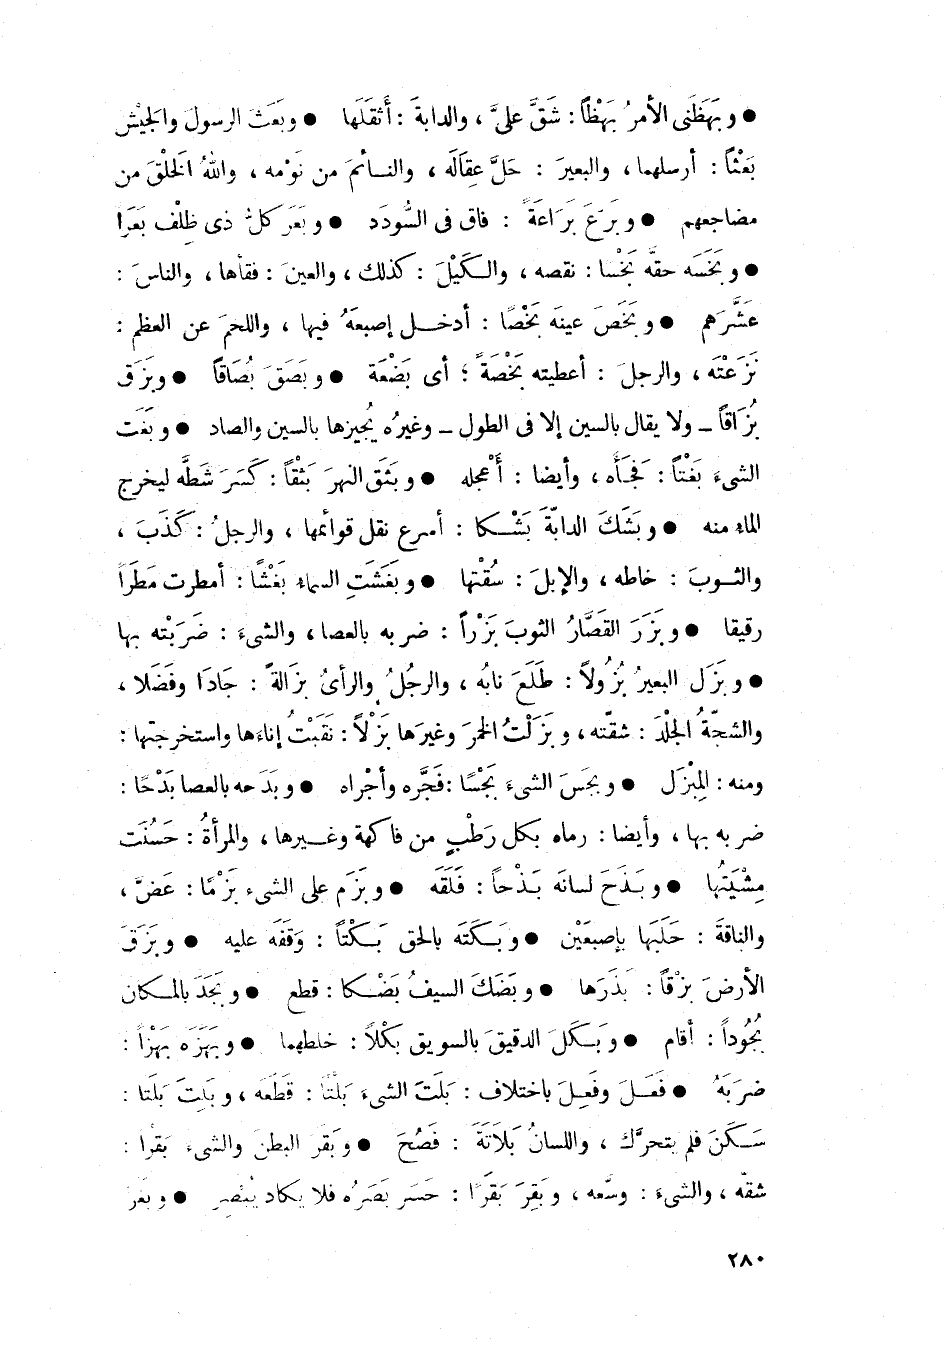 ● وبَهَظَنى الأمرُ بَهْظاً : شَقَّ علىَّ ، والدابةَ : أَثقَلَها ● وبَعَثَ الرسولَ والجيْش
بَعْثاً : أرسلهما ، والبعيرَ : حَلَّ عِقَالَه ، والنـائمَ من نَوْمه ، واللهُ الخلْقَ من
مضاجعهم ● وبَرَعَ بَرَاعَةً : فاق فى السُّودَد ● وبَعَر كلُّ ذى ظِلْف بَعَرا
● وبَخَسَه حقَّه بَخْسا : نقصه ، والـكَيْلَ : كذلك ، والعينَ : فقأها ، والناسَ :
عَشَّرَهم ● وبَخَصَ عينَه بَخْصًا : أدخـل إصبعَهُ فيها ، واللحمَ عن العظم :
نَزَعْتَه ، والرجلَ : أعطيته بَخْصَةً ؛ أى بَضْعَة ● وبَصَقَ بُصَاقاً ● وبَزَق
بُزَاقاً ــ ولا يقال بالسين إلا فى الطول ــ وغيرُه يُجيزها بالسين والصاد ● وبَغَت
الشىءَ بَغْتاً : فَجَأَه ، وأيضا : أَعْجله ● وبَثَق النهرَ بَثْقاً : كَسَرَ شَطَّه ليخرج
الماء منه ● وبَشَكَ الدابَّةَ بَشْـكا : أسرع نقل قوائمها ، والرجلُ : كَذَبَ ،
والثـوبَ : خاطه ، والإبلَ : سُقْتها ● وبَغَشَتِ السماء بَغْشًا : أمطرت مَطَراً
رقيقا ● وبَزَرَ القَصَّارُ الثوبَ بَزْراً : ضربه بالعصا ، والشىءَ : ضَرَبْته بها
● وبَزَل البعيرُ بُزُولاً : طَلَعَ نابُه ، والرجُلُ والرأىُ بزَالةً : جَادَا وفَضَلا ،
والشجَّةُ الجلْدَ : شقّته ، وبَزَلْتُ الخمَرَ وغيرَها بَزْلاً : نَقَبْتُ إناءَها واستخرجتها :
ومنه : المِبْزَل ● وبجَسَ الشىءَ بَجْسًا : فَجَّره وأجْراه ● وبَدَحه بالعصا بَدْحًا :
ضربه بها ، وأيضا : رماه بكل رَطْبٍ من فاكهة وغـيرها ، والمرأةُ : حَسُنَت
مِشْيَتُها ● وبَـذَحَ لسانَه بَـذْحاً : فَلَقَه ● وبَزَم على الشىء بَزْمًا : عَضَّ ،
والناقةَ : حَلَبَها بإصبعَيْن ● وبَـكَتَه بالحق بَـكْتاً : وَقَفَه عليه ● وبَزَقَ
الأرضَ بزْقاً : بَذَرَها ● وبَضَكَ السيفُ بَضْـكا : قطع ● وبَجَدَ بالمـكان
بُجُوداً : أقام ● وبَـكَلَ الدقيقَ بالسويق بَكْلاً : خلطهما ● وبَهَزَه بَهْزاً :
ضرَبَهُ ● فَعَـلَ وفَعِـلَ باختلاف : بَلَتَ الشىءَ بَلْتًا : قَطَعَه ، وبَلِتَ بَلَتا :
سَـكَنَ فلم يتحرَّك ، واللسانُ بَلاَتَةً : فَصُحَ ● وبَقَر البطنَ والشىء بَقْرا :
شقّه ، والشىءَ : وسَّعه ، وبَقِرَ بَقَرًا : حَسَر بَصَرُه فلا يكاد يُبْصِر ● وبَغَرَ
٢٨٠